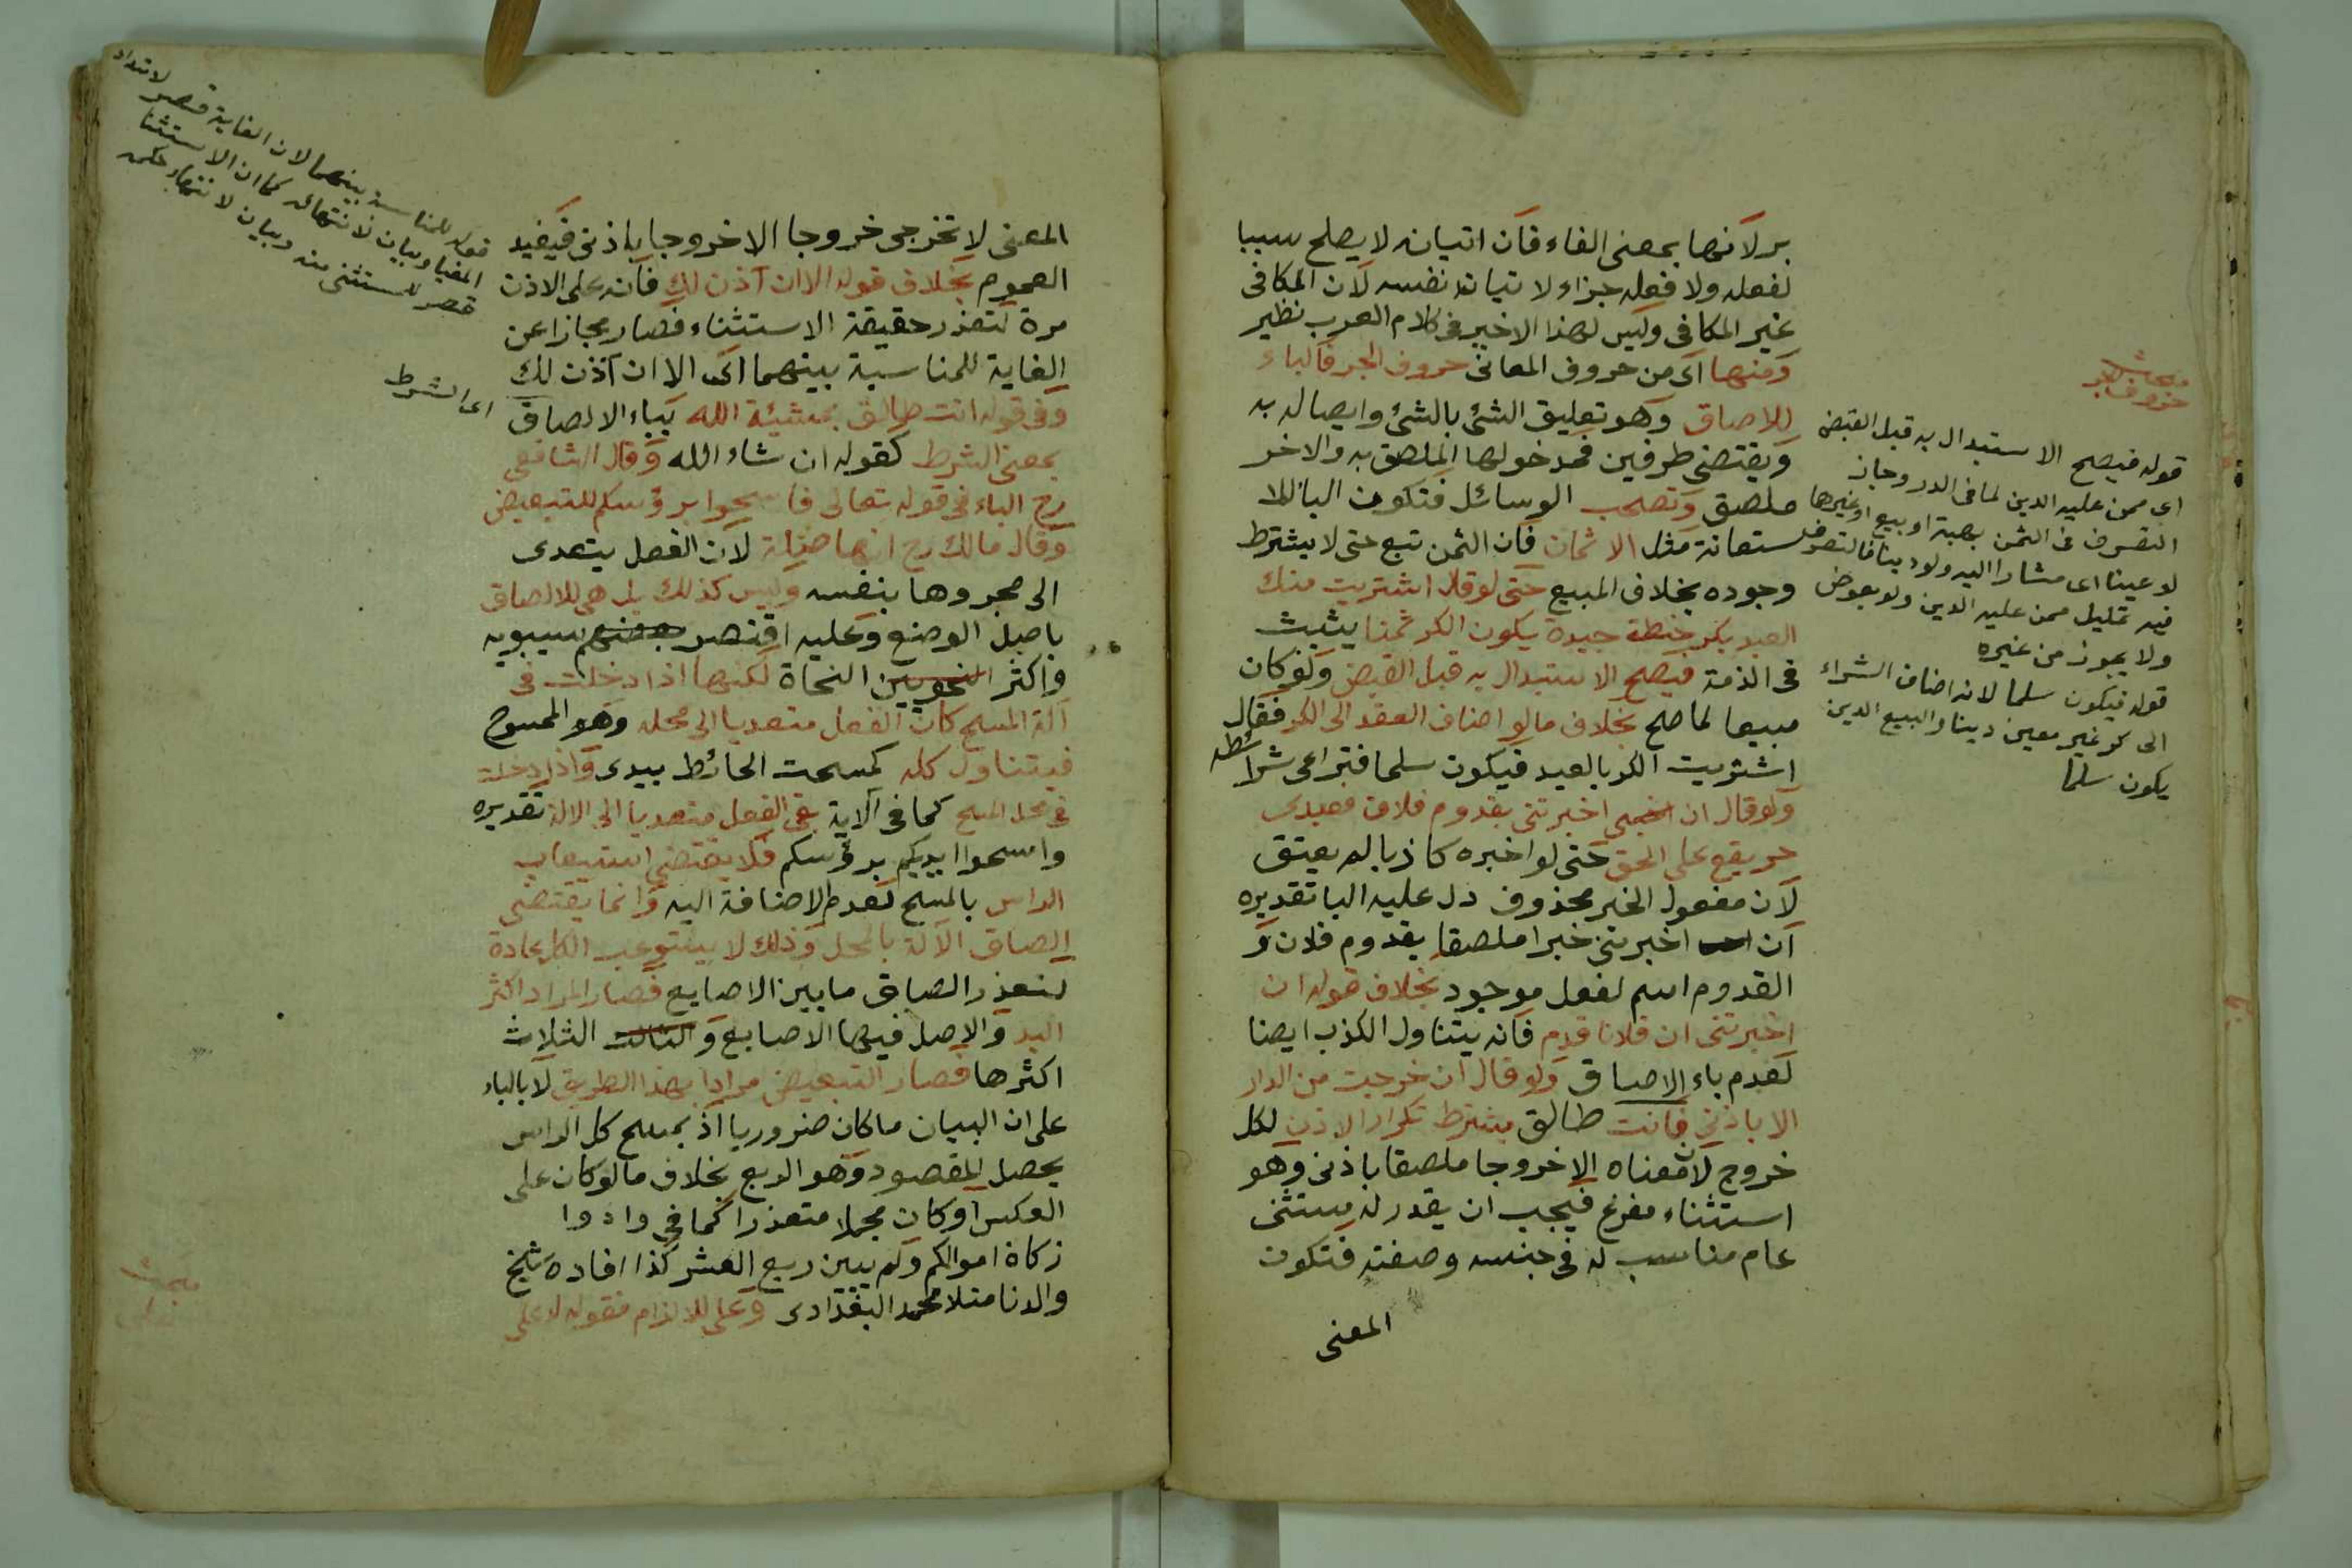 بر لانها بمعنى الفاء فان اتيانه لا يصلح سببا
لفعله ولا فعله جزاء لاتيان نفسه لان المكافى
غير المكافى وليس لهذا الاخير فى كلام العرب نظير
ومنها اى من حروف المعانى حروف الجر فالباء
للالصاق وهو تعليق الشئ بالشئ وايصاله به
ويقتضى طرفين فمدخولها الملصق به والاخر
ملصق وتصحب الوسائل فتكون البا للا
ستعانة مثل الاثمان فان الثمن تبع حتى لا يشترط
وجوده بخلاف المبيع حتى لو قال اشتريت منك
العبد بكر حنطة جيدة يكون الكر ثمنا يثبت
فى الذمة فيصح الاستبدال به قبل القبض ولو كان
مبيعا لما صح بخلاف ما لو اضاف العقد الى الكر فقال
اشتريت الكر بالعبد فيكون سلما فتراعى شرائطه
ولو قال ان اخبرتنى بقدوم فلان فعبدى
حر يقع على الحق حتى لو اخبره كاذبا لم يعتق
لان مفعول الخبر محذوف دل عليه البا تقديره
ان اخبرتنى خبرا ملصقا بقدوم فلان و
القدوم اسم لفعل موجود بخلاف قوله ان
اخبرتنى ان فلانا قدم فانه يتناول الكذب ايضا
لعدم باء الالصاق ولو قال ان خرجت من الدار
الا باذنى فانت طالق يشترط تكرار الاذن لكل
خروج لان معناه الا خروجا ملصقا باذنى وهو
استثناء مفرغ فيجب ان يقدر له مستثنى
عام مناسب له فى جنسه وصفته فتكون
المعنى
مبحث
حروف الجر
قوله فيصح الاستبدال به قبل القبض
اى ممن عليه الدين لما فى الدر وجاز
التصرف فى الثمن بهبة او بيع او غيرها
لو عينا اى مشارا اليه ولو دينا فالتصرف
فيه تمليك ممن عليه الدين ولو بعوض
ولا يجوز من غيره
قوله فيكون سلما لانه اضاف الشراء
الى كر غير معين دينا والبيع الدين
يكون سلما
المعنى لا تخرجى خروجا الا خروجا باذنى فيفيد
العموم بخلاف قوله الا ان آذن لك فانه على الاذن
مرة لتعذر حقيقة الاستثناء فصار مجازا عن
الغاية للمناسبة بينهما اى الا ان آذن لك
وفى قوله انت طالق بمشيئة الله بباء الالصاق
بمعنى الشرط كقوله ان شاء الله وقال الشافعى
رح الباء فى قوله تعالى فامسحوا برؤسكم للتبعيض
وقال مالك رح انها صلة لان الفعل يتعدى
الى مجرورها بنفسه وليس كذلك بل هى للالصاق
باصل الوضع وعليه اقتصر سيبويه
واكثر النحاة لكنها اذا دخلت فى
آلة المسح كان الفعل متعديا الى محله وهو الممسوح
فيتناول كله كمسحت الحائط بيدى واذا دخلت
فى محل المسح كما فى الآية بقى الفعل متعديا الى الالة تقديره
وامسحوا ايديكم برؤسكم فلا يقتضى استيعاب
الراس بالمسح لعدم الاضافة اليه وانما يقتضى
الصاق الآلة بالمحل وذلك لا يستوعب الكل عادة
لتعذر الصاق ما بين الاصابع فصار المراد اكثر
اليد والاصل فيها الاصابع و الثلاث
اكثرها فصار التبعيض مرادا بهذا الطريق لا بالباء
على ان البيان ما كان ضروريا اذ بمسح كل الراس
يحصل المقصود وهو الربع بخلاف ما لو كان على
العكس او كان مجملا متعذرا كما فى وادوا
زكاة اموالكم ولم يبين ربع العشر كذا افاده شيخ
والدنا منلا محمد البغدادى وعلى للالزام فقوله له على
قوله للمناسبة بينهما لان الغاية قصر لامتداد
المغيا وبيان لانتهائه كما ان الاستثنا
قصر للمستثنى منه وبيان لانتهاء حكمه
اى الشرط
مبحث
على